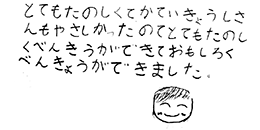 とてもたのしくてかていきょうしさ
んもやさしかったのてとてもたのし
くべんきうができておもしろく
べんきょうができました。